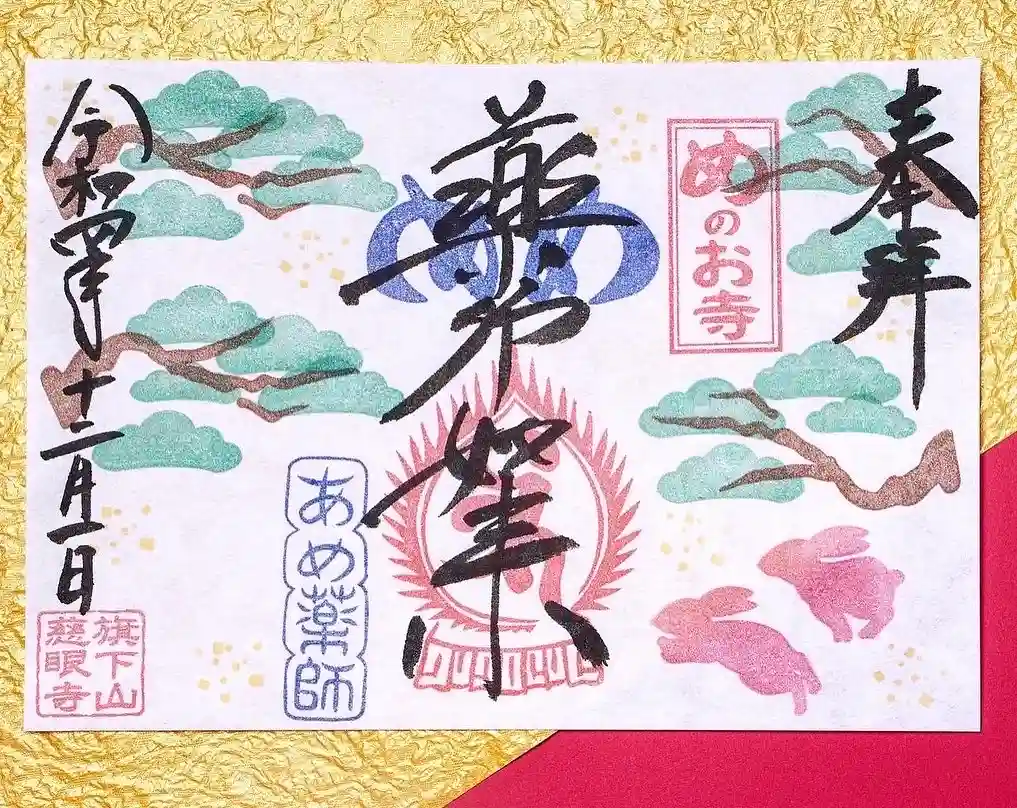 奉拝
めのお寺
薬師如来
め
あめ薬師
令和四年十二月一日
旗下山
慈眼寺